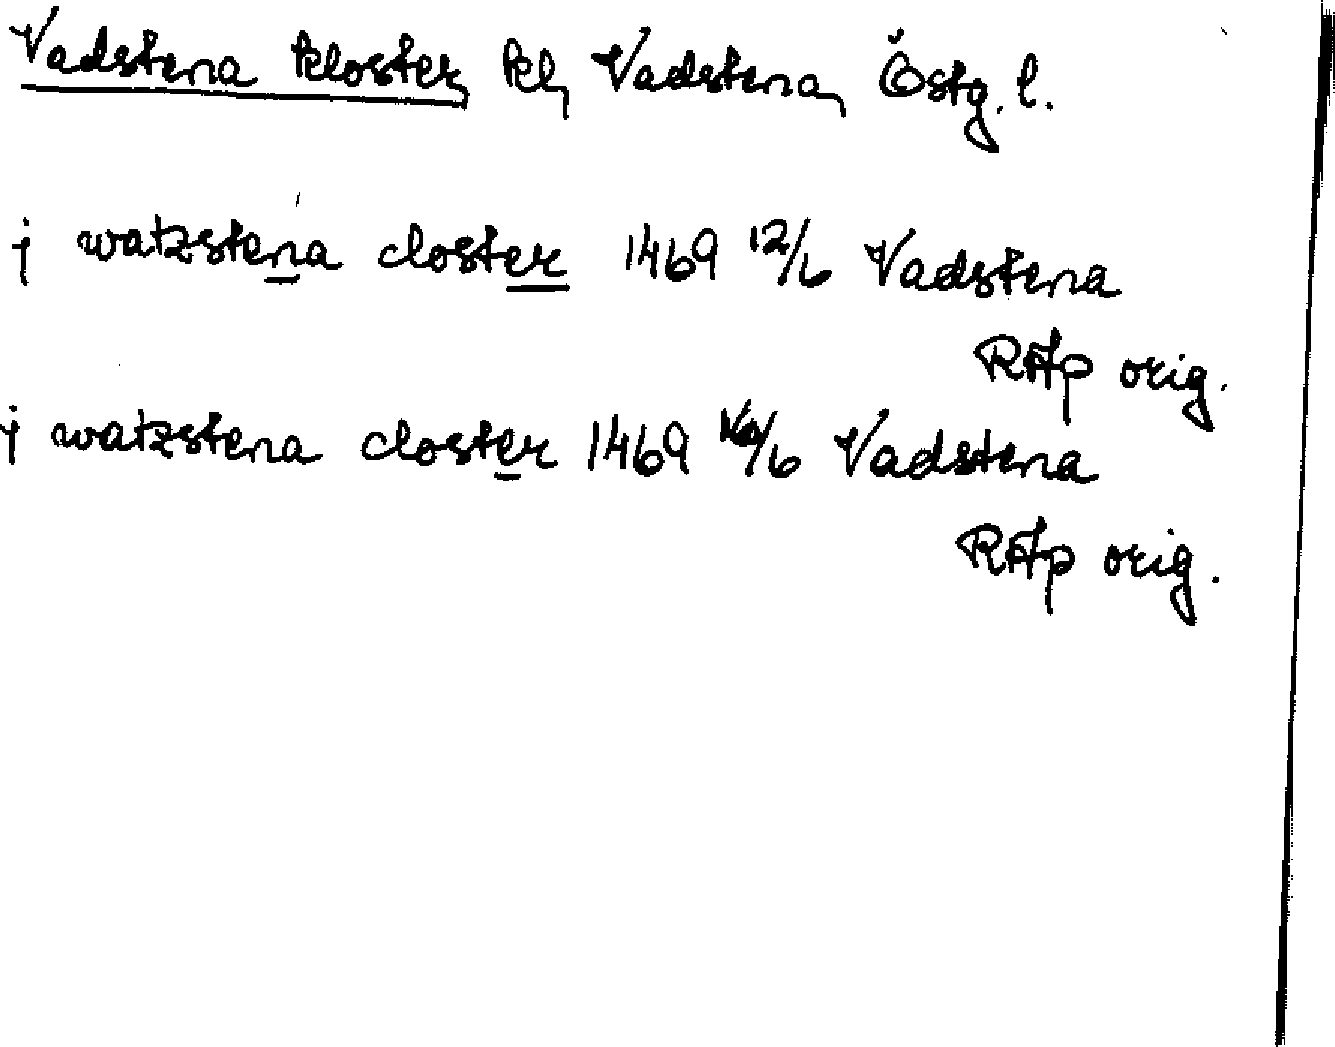 Vadstena kloster, kl, Vadstena, Östg. l.
j watzstena closter 1469 12/6 Vadstena
RAp orig.
j watzstena closter 1469 16/6 Vadstena
RAp orig.